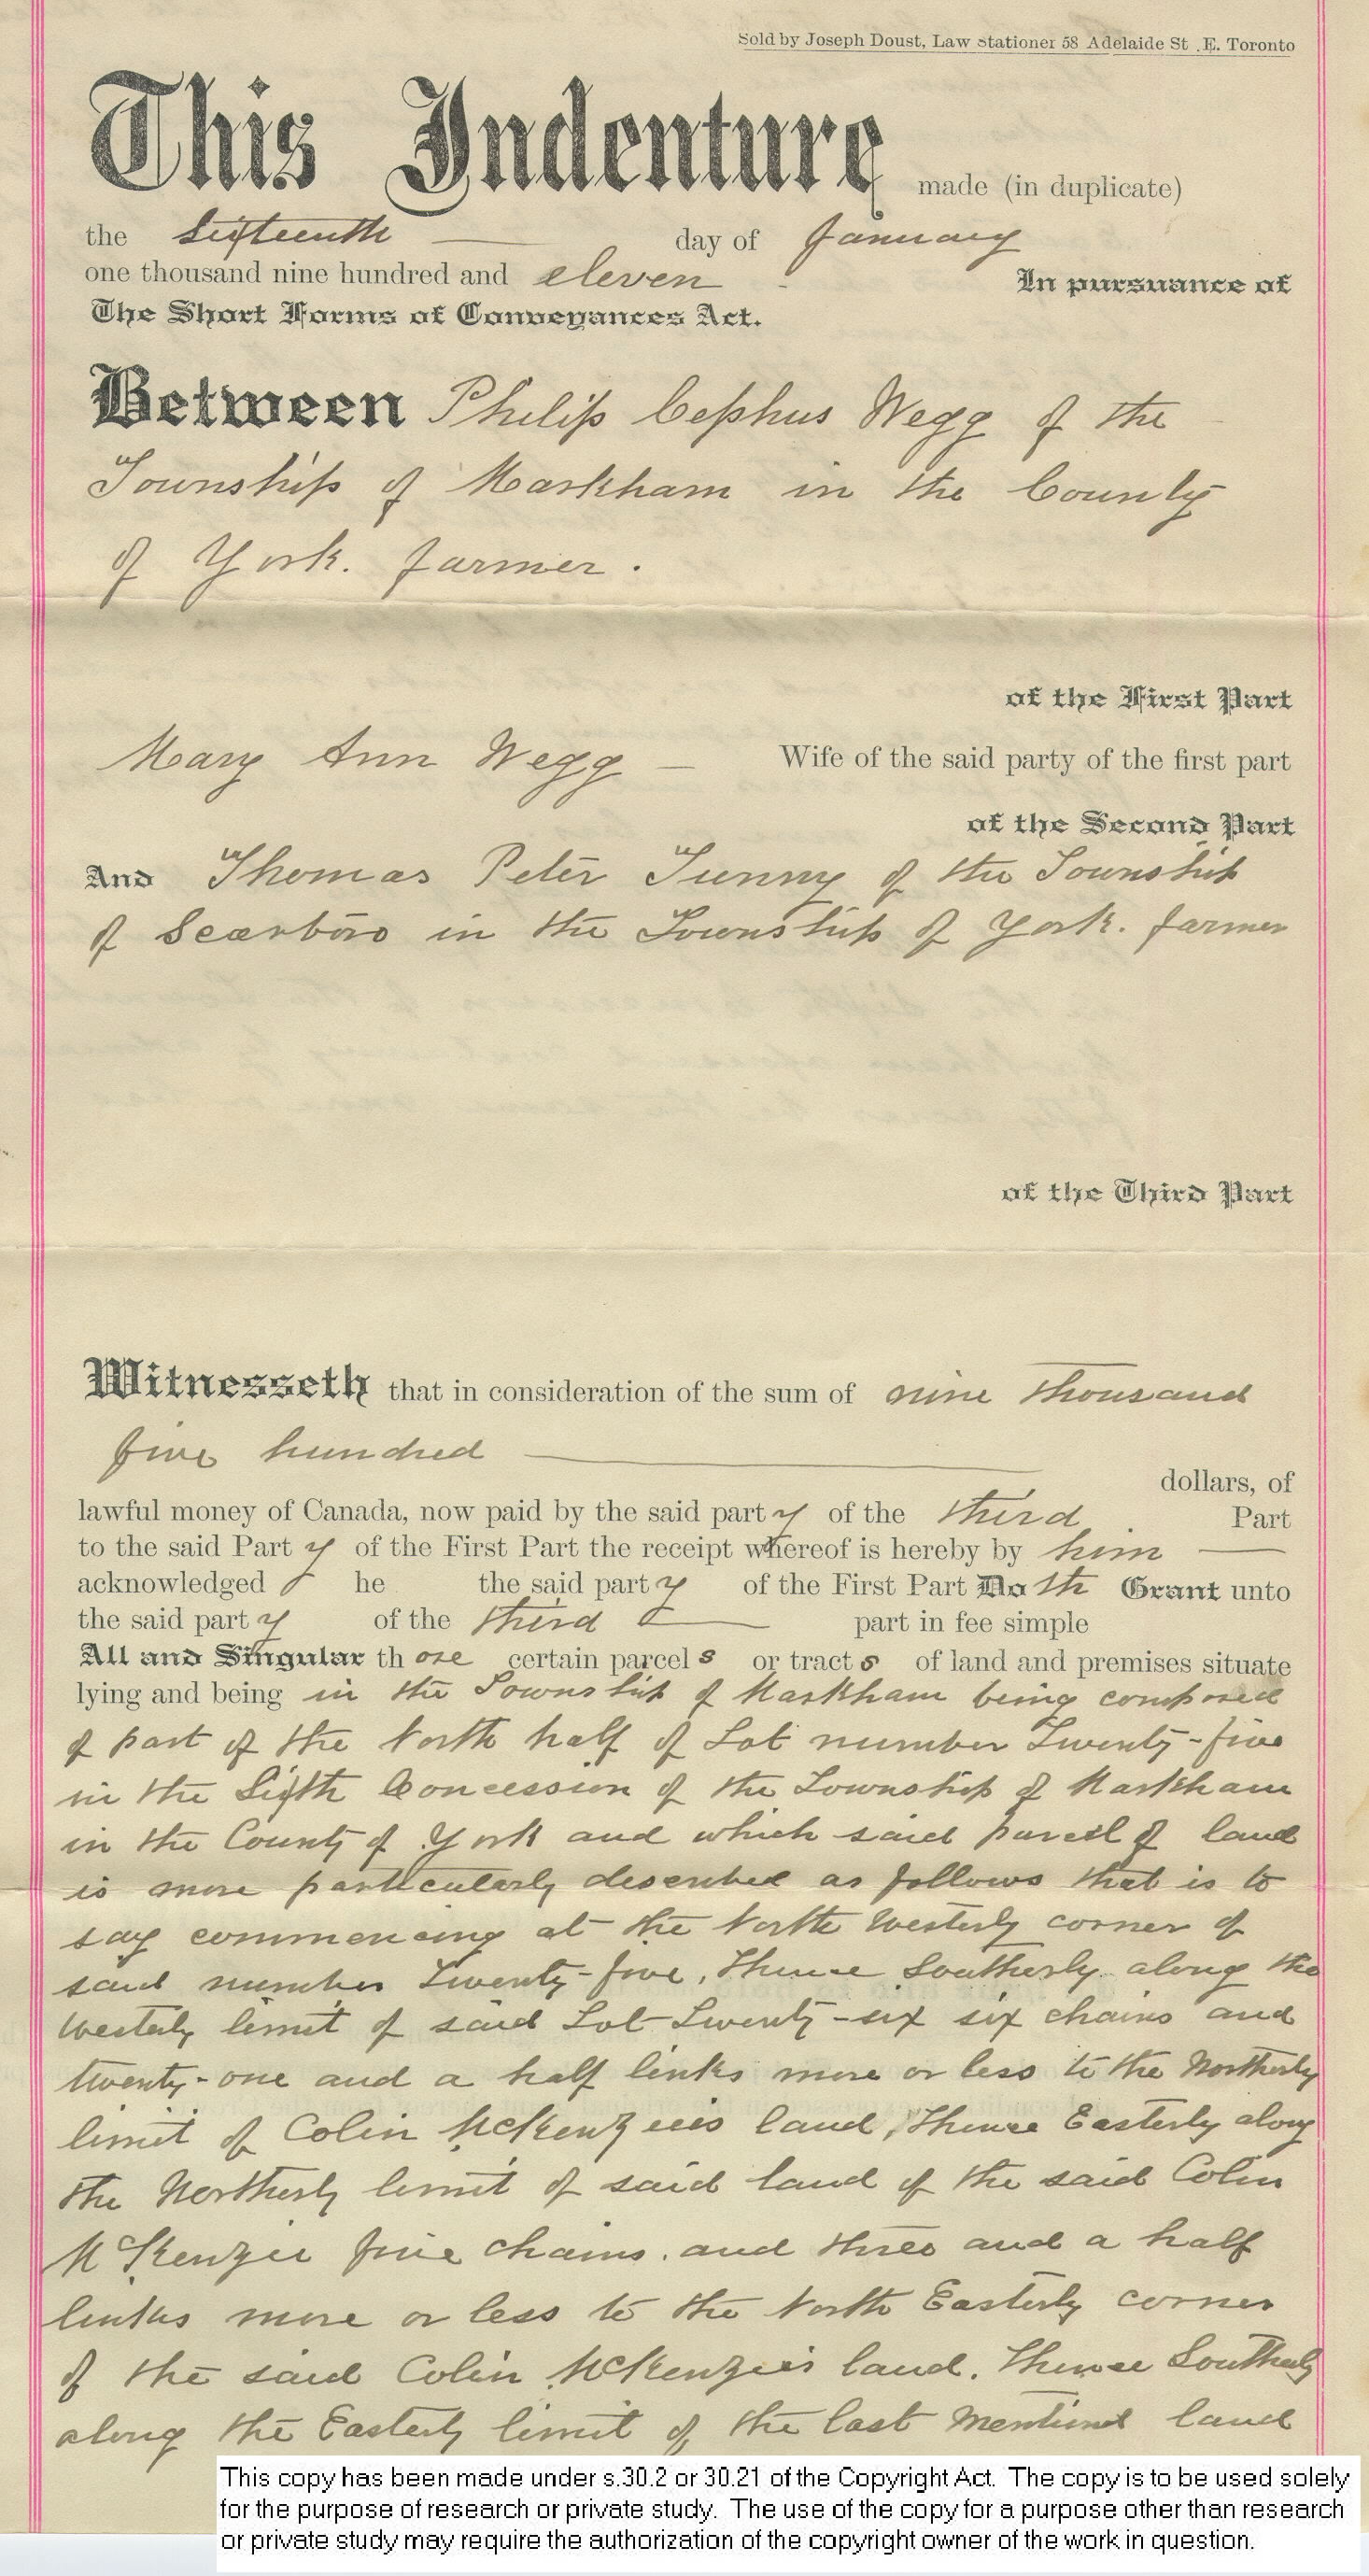 Sold by Joseph Doust, Law Stationer 58 Adelaide St. E. Toronto
This Indenture made (in duplicate)
the Sixteenth day of January
one thousand nine hundred and eleven In pursuance of
The Short Forms of Conveyances Act.
Between Philip Cephus Wegg of the
Township of Markham in the County
of York. farmer.
of the First Part
Mary Ann Wegg — Wife of the said party of the first part
of the Second Part
And Thomas Peter Tunny of the Township
of Scarboro in the Township of York. farmer
of the Third Part
Witnesseth that in consideration of the sum of nine thousand
five hundred
dollars, of
lawful money of Canada, now paid by the said party of the third Part
to the said Party of the First Part the receipt whereof is hereby by him
acknowledged he the said party of the First Part Doth Grant unto
the said party of the third part in fee simple
All and Singular those certain parcels or tracts of land and premises situate
lying and being in the Township of Markham being composed
of part of the North half of Lot number Twenty-five
in the Sixth Concession of the Township of Markham
in the County of York and which said parcel of land
is more particularly described as follows that is to
say commencing at the North Westerly corner of
said number Twenty-five, Thence Southerly along the
Westerly limit of said Lot Twenty-six six chains and
twenty-one and a half links more or less to the Northerly
limit of Colin McKenzies land, Thence Easterly along
the Northerly limit of said land of the said Colin
McKenzie five chains. and three and a half
links more or less to the North Easterly corner
of the said Colin McKenzies land. Thence Southerly
along the Easterly limit of the last mentioned land
This copy has been made under s.30.2 or 30.21 of the Copyright Act. The copy is to be used solely
for the purpose of research or private study. The use of the copy for a purpose other than research
or private study may require the authorization of the copyright owner of the work in question.